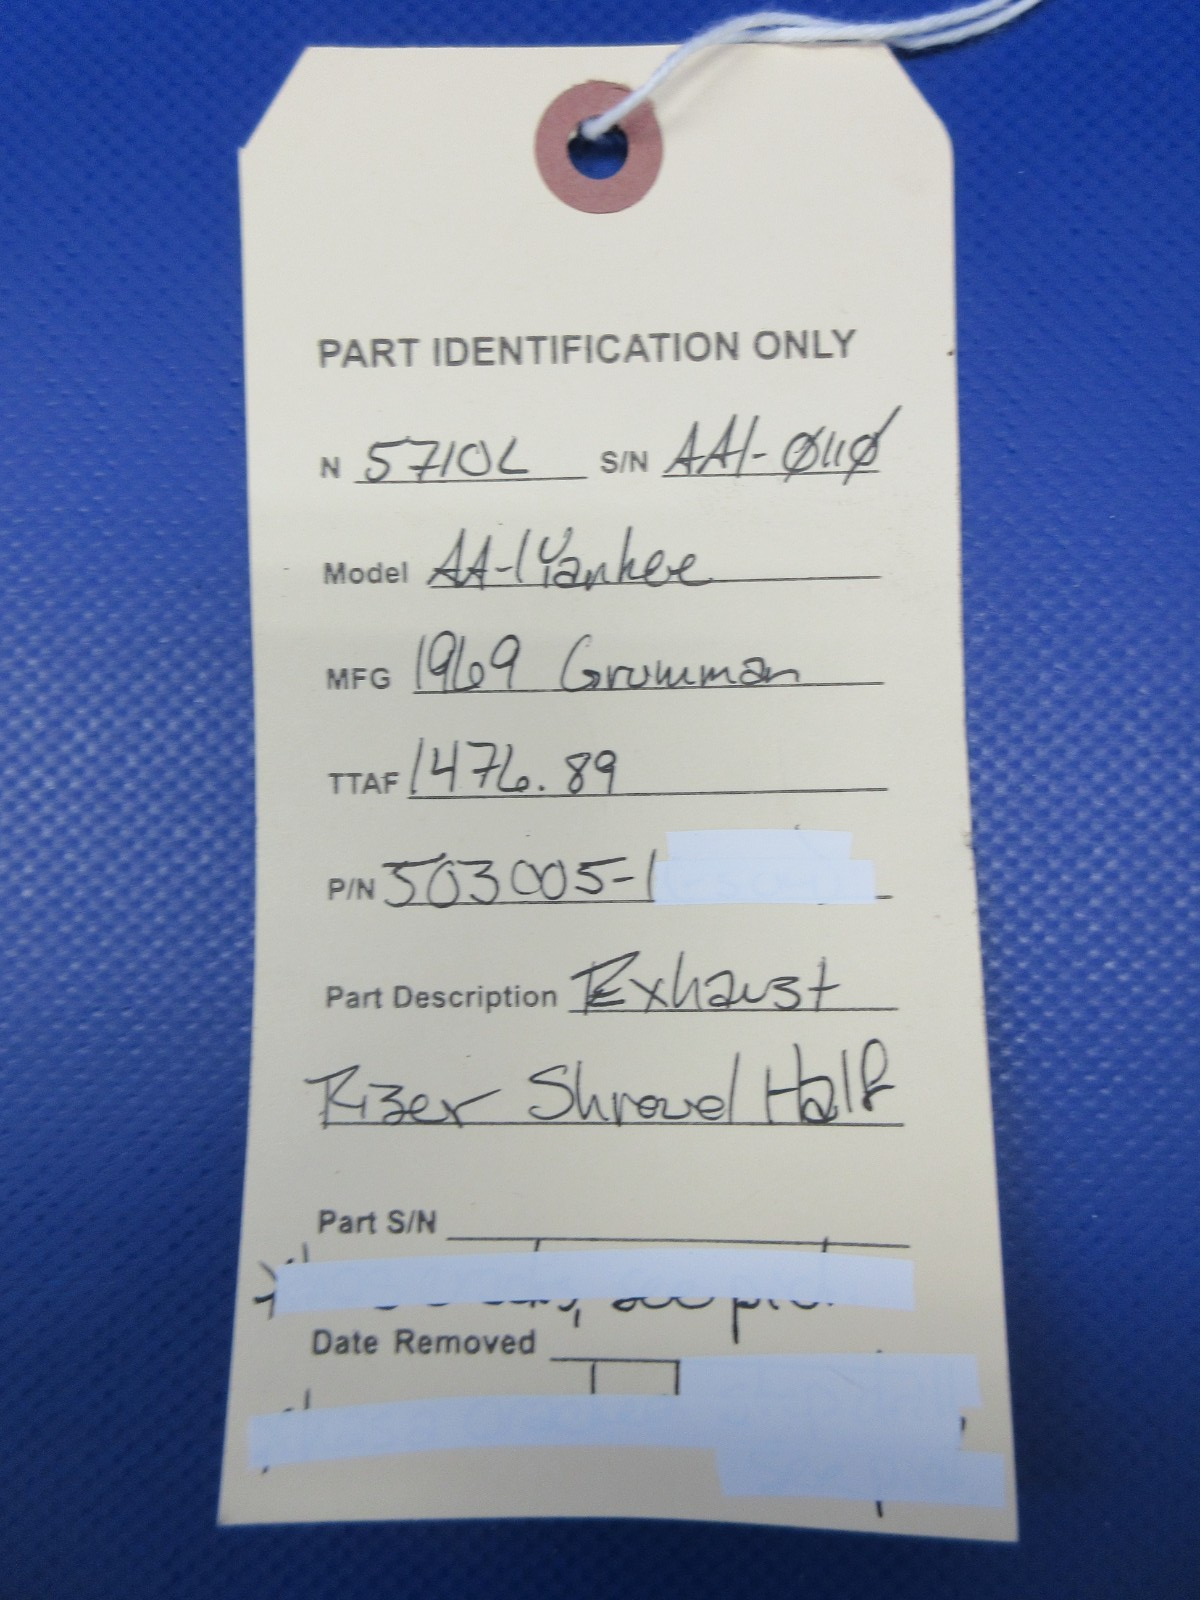 PART IDENTIFICATION ONLY
N 5710L S/N AA1-0110
Model AA-1 Yankee
MFG 1969 Grumman
TTAF 1476.89
P/N 503005-1
Part Description Exhaust
Rizer Shroud Half
Part S/N
Date Removed